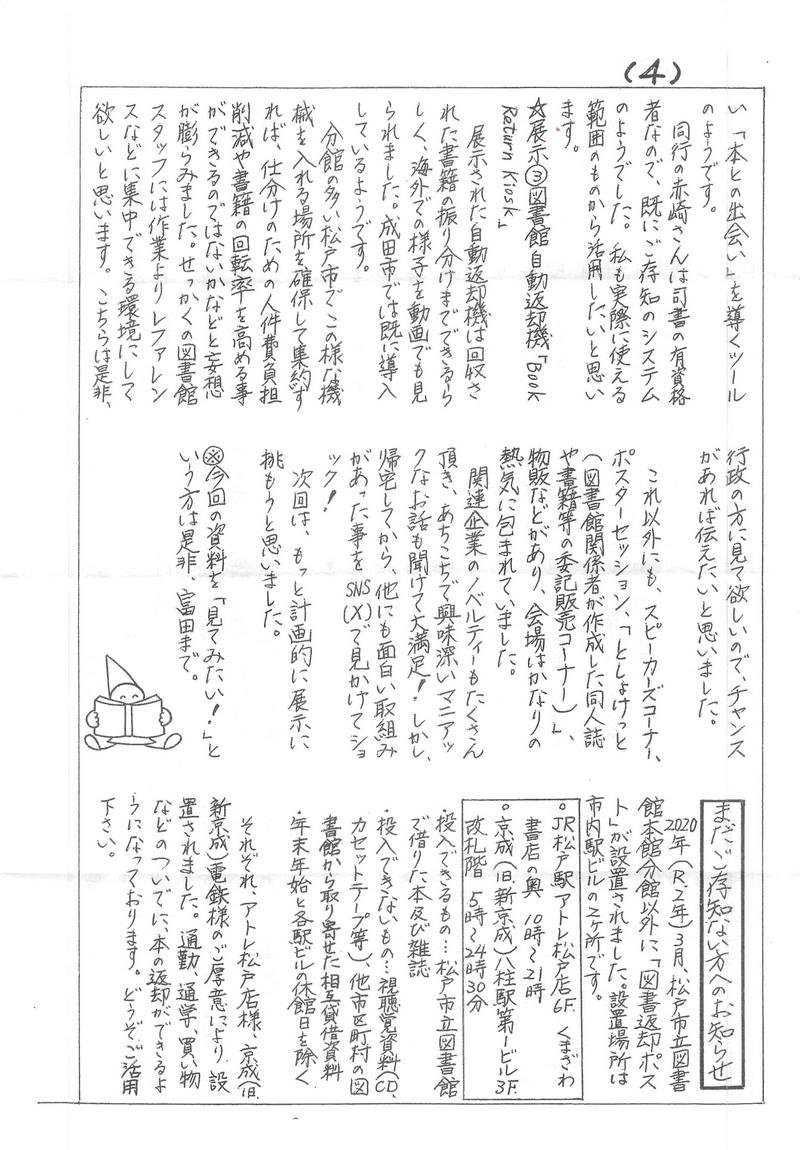 （４）
い「本との出会い」を導くツール
のようです。
同行の赤崎さんは司書の有資格
者なので、既にご存知のシステム
のようでした。私も実際に使える
範囲のものから活用したいと思い
ます。
☆展示③図書館 自動返却機「Book
Return Kiosk」
展示された自動返却機は回収さ
れた書籍の振り分けまでできるら
しく、海外での様子を動画でも見
られました。成田市では既に導入
しているようです。
分館の多い松戸市でこの様な機
械を入れる場所を確保して集約す
れば、仕分けのための人件費負担
削減や書籍の回転率を高める事
ができるのではないかなどと妄想
が膨らみました。せっかくの図書館
スタッフには作業よりレファレン
スなどに集中できる環境にして
欲しいと思います。こちらは是非、
行政の方に見て欲しいので、チャンス
があれば伝えたいと思いました。
これ以外にも、スピーカーズコーナー、
ポスターセッション、「としょけっと
（図書館関係者が作成した同人誌
や書籍等の委託販売コーナー）」、
物販などがあり、会場はかなりの
熱気に包まれていました。
関連企業のノベルティーもたくさん
頂き、あちこちで興味深いマニアッ
クなお話も聞けて大満足！しかし、
帰宅してから、他にも面白い取組み
があった事をSNS(X)で見かけてショ
ック！
次回は、もっと計画的に展示に
挑もうと思いました。
※今回の資料を「見てみたい！」と
いう方は是非、富田まで。
まだご存知ない方へのお知らせ
2020年（R2年）3月、松戸市立図書
館本館分館以外に「図書返却ポス
ト」が設置されました。設置場所は
市内駅ビルの2ヶ所です。
○JR松戸駅アトレ松戸店6F くまざわ
書店の奥 10時〜21時
○京成（旧新京成）八柱駅第一ビル3F
改札階 5時〜24時30分
・投入できるもの…松戸市立図書館
で借りた本及び雑誌
・投入できないもの…視聴覚資料（CD、
カセットテープ等）、他市区町村の図
書館から取り寄せた相互貸借資料
・年末年始と各駅ビルの休館日を除く
それぞれ、アトレ松戸店様、京成（旧
新京成）電鉄様のご厚意により、設
置されました。通勤、通学、買い物
などのついでに、本の返却ができるよ
うになっております。どうぞご活用
下さい。